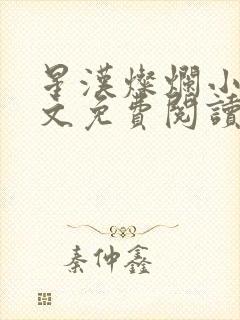 星漢燦爛小
文免費閱讀
秦仲鑫